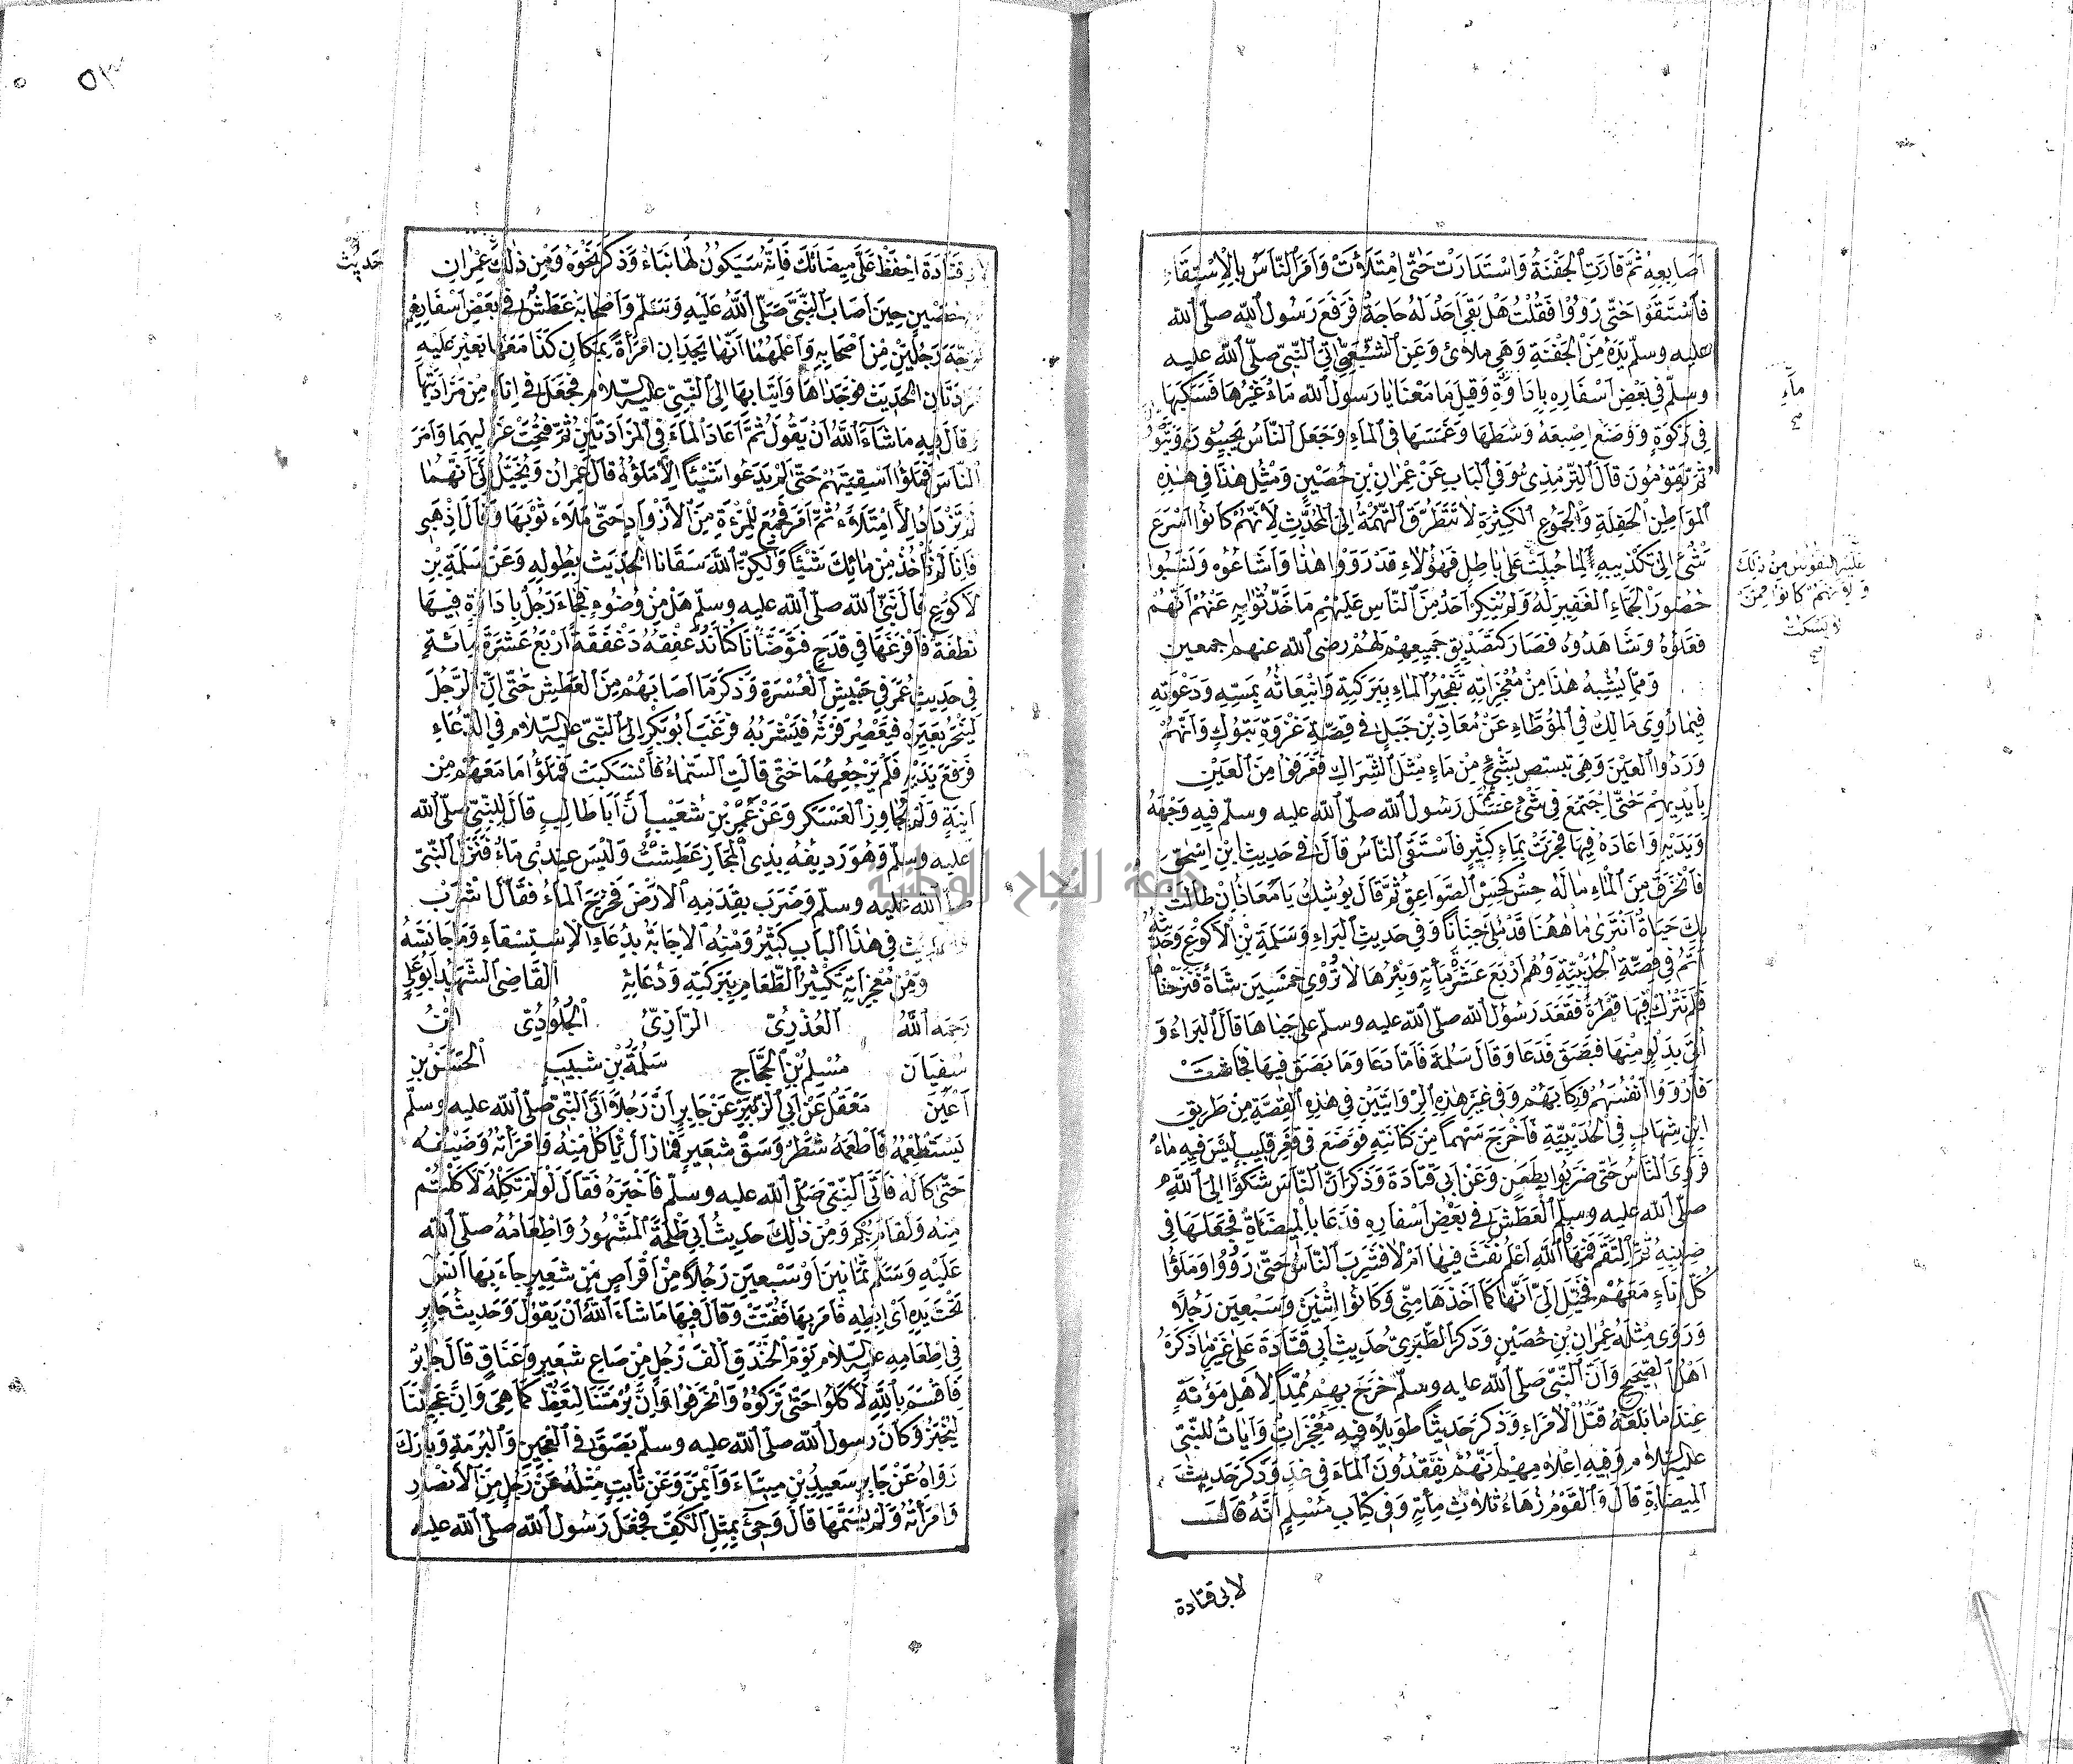 أَصَابِعِهِ ثُمَّ فَارَتِ الْجَفْنَةُ وَاسْتَدَارَتْ حَتَّى امْتَلَأَتْ وَأَمَرَ النَّاسَ بِالْاِسْتِقَاءِ
فَاسْتَقَوْا حَتَّى رَوُوْا فَقُلْتُ هَلْ بَقِيَ أَحَدٌ لَهُ حَاجَةٌ فَرَفَعَ رَسُولُ اللّه صلّى اللّه
عليه وسلّم يَدَهُ مِنَ الْجَفْنَةِ وَهِيَ مَلْأَى وَعَنِ الشَّعْبِيِّ أُتِيَ النَّبِيّ صلّى اللّه عليه
وسلّم فِي بَعْضِ أَسْفَارِهِ بِإِدَاوَةِ وَقِيلَ مَا مَعَنَا يَا رَسُولَ اللّه مَاءٌ غَيْرُهَا فَسَكَبَهَا
مَاءٍ
صح
فِي رَكْوَةٍ وَوَضَعَ إِصْبَعَهُ وَسْطَهَا وَغَمَسَهَا فِي الْمَاءِ وَجَعَلَ النَّاسُ يَجِيئُونَ وَيَتَوَضَّؤُنَ
ثُمَّ يَقُومُونَ قَالَ التِّرْمِذِيُّ وَفِي الْبَابِ عَنْ عِمْرَانَ بْنِ حُصَيْنٍ وَمِثْلُ هٰذَا فِي هٰذِهِ
الْمَوَاطِنِ الْحَفِلَةِ وَالْجُمُوعِ الْكَثِيرَةِ لَا تَتَطَرَّقُ التُّهْمَةُ إِلَى الْمُحَدِّثِ لِأَنَّهُمْ كَانُوا أَسْرَعَ
شَيْءٍ إِلَى تَكْذِيبِهِ لِمَا جُبِلَتْ عَلَى بَاطِلٍ فَهٰؤُلَاءِ قَدْ رَوَوْا هٰذَا وَأَشَاعُوهُ وَنَسَبُوا
عَلَيْهِ النُّفُوسُ مِنْ ذٰلِكَ
وَلِأَنَّهُمْ كَانُوا مِمَّنْ
لَا يَسْكُتُ
صح
حُضُورَ الْجَمَّاءِ الْغَفِيرِ لَهُ وَلَمْ يُنْكِرْ أَحَدٌ مِنَ النَّاسِ عَلَيْهِمْ مَا حَدَّثُوا بِهِ عَنْهُمْ أَنَّهُمْ
فَعَلُوهُ وَشَاهَدُوهُ فَصَارَ كَتَصْدِيقِ جَمِيعِهِمْ لَهُمْ رضى اللّه عنهم اجمعين
وَمِمَّا يُشْبِهُ هٰذَا مِنْ مُعْجِزَاتِهِ تَفْجِيرُ الْمَاءِ بِبَرَكَتِهِ وَانْبِعَاثُهُ بِمَسِّهِ وَدَعْوَتِهِ
فِيمَا رَوَى مَالِكٌ فِي الْمُوَطَّاءِ عَنْ مُعَاذِ بْنِ جَبَلٍ فِي قِصَّةِ غَزْوَةِ تَبُوكَ وَأَنَّهُمْ
وَرَدُوا الْعَيْنَ وَهِيَ تبص بِشَيْءٍ مِنْ مَاءٍ مِثْلَ الشِّرَاكِ فَغَرَفُوا مِنَ الْعَيْنِ
بِأَيْدِيهِمْ حَتَّى اجْتَمَعَ فِي شَيْءٍ ثُمَّ غَسَلَ رَسُولُ اللّه صلّى اللّه عليه وسلّم فِيهِ وَجْهَهُ
وَيَدَيْهِ وَأَعَادَهُ فِيهَا فَجَرَتْ بِمَاءٍ كَثِيرٍ فَاسْتَقَى النَّاسُ قَالَ فِي حَدِيثِ ابْنِ إِسْحٰقَ
فَانْخَرَقَ مِنَ الْمَاءِ مَا لَهُ حِسٌّ كَحِسِّ الصَّوَاعِقِ ثُمَّ قَالَ يُوشِكُ يَا مُعَاذُ إِنْ طَالَتْ
بِكَ حَيَاةٌ أَنْ تَرَى مَا هٰهُنَا قَدْ مُلِئَ جِنَانًا وَفِي حَدِيثِ الْبَرَاءِ وَسَلَمَةَ بْنِ الْأَكْوَعِ وَحَدِيثُهُ
أَتَمُّ فِي قِصَّةِ الْحُدَيْبِيَةِ وَهُمْ أَرْبَعَ عَشَرَةَ مِأَيَةٍ وَبِئْرُهَا لَا تُرْوِي خَمْسِينَ شَاةً فَنَزَحْنَاهَا
فَلَمْ نَتْرُكْ فِيهَا قَطْرَةً فَقَعَدَ رَسُولُ اللّه صلّى اللّه عليه وسلّم عَلَى جَبَاهَا قَالَ الْبَرَاءُ وَ
أُتِيَ بِدَلْوٍ مِنْهَا فَبَصَقَ فَدَعَا وَقَالَ سَلَمَةُ فَإِمَّا دَعَا وَإِمَّا بَصَقَ فِيهَا فَجَاشَتْ
فَأَرْوَوْا أَنْفُسَهُمْ وَرِكَابَهُمْ وَفِي غَيْرِ هٰذِهِ الرِّوَايَتَيْنِ فِي هٰذِهِ الْقِصَّةِ مِنْ طَرِيقِ
ابْنِ شِهَابٍ فِي الْحُدَيْبِيَةِ فَأَخْرَجَ سَهْمًا مِنْ كِنَانَتِهِ فَوَضَعَ فِي قَعْرِ قَلِيبٍ لَيْسَ فِيهِ مَاءٌ
فَرَوِيَ النَّاسُ حَتَّى ضَرَبُوا بِعَطَنٍ وَعَنْ أَبِي قَتَادَةَ وَذَكَرَ أَنَّ النَّاسَ شَكَوْا إِلَى اللَّهِ
صلّى اللّه عليه وسلّم الْعَطَشَ فِي بَعْضِ أَسْفَارِهِ فَدَعَا بِالْمِيضَأَةِ فَجَعَلَهَا فِي
ضِبْنِهِ ثُمَّ الْتَقَمَ فَمَهَا وَاللّهُ أَعْلَمُ نَفَثَ فِيهَا أَمْ لَا فَشَرِبَ النَّاسُ حَتَّى رَوُوْا وَمَلَؤُا
كُلَّ إِنَاءٍ مَعَهُمْ فَخُيِّلَ لِي أَنَّهَا كَمَا أَخَذَهَا مِنِّي وَكَانُوا اثْنَيْنِ وَسَبْعِينَ رَجُلًا
وَرَوَى مِثْلَهُ عِمْرَانُ بْنُ حُصَيْنٍ وَذَكَرَ الطَّبَرِيُّ حَدِيثَ أَبِي قَتَادَةَ عَلَى غَيْرِ مَا ذَكَرَهُ
أَهْلُ الصَّحِيحِ وَأَنَّ النَّبِيَّ صلّى اللّه عليه وسلّم خَرَجَ بِهِمْ مُمِدًّا لِأَهْلِ مُؤْتَةَ
عِنْدَمَا بَلَغَهُ قَتْلُ الْأُمَرَاءِ وَذَكَرَ حَدِيثًا طَوِيلًا فِيهِ مُعْجِزَاتٌ وَآيَاتٌ لِلنَّبِيِّ
عليه السّلام وَفِيهِ إِعْلَامُهُمْ أَنَّهُمْ يَفْقِدُونَ الْمَاءَ فِي غَدٍ وَذَكَرَ حَدِيثَ
الْمِيضَاءَةِ قَالَ وَالْقَوْمُ زُهَاءُ ثَلَاثِ مِأَيَةٍ وَفِي كِتَابِ مُسْلِمٍ أَنَّهُ قَالَ
لابى قتادة
٥٣
لِأَبِي قَتَادَةَ احْفَظْ عَلَيَّ مِيضَأَتَكَ فَإِنَّهُ سَيَكُونُ لَهَا نَبَاءٌ وَذَكَرَ نَحْوَهُ وَمِنْ ذٰلِكَ عِمْرَانَ
حَدِيثُ
بْنِ حُصَيْنٍ حِينَ أَصَابَ النَّبِيَّ صَلَّى اللَّهُ عَلَيْهِ وَسَلَّمَ وَأَصْحَابَهُ عَطَشٌ فِي بَعْضِ أَسْفَارِهِمْ
فَوَجَّهَ رَجُلَيْنِ مِنْ أَصْحَابِهِ وَأَعْلَمَهُمَا أَنَّهُمَا يَجِدَانِ امْرَأَةً بِمَكَانِ كَذَا مَعَهَا بَعِيرٌ عَلَيْهِ
مَزَادَتَانِ الْحَدِيثَ فَوَجَدَاهَا وَأَتَيَا بِهَا إِلَى النَّبِيِّ عليه السّلام فَجَعَلَ فِي إِنَاءٍ مِنْ مَزَادَتَيْهَا
وَقَالَ فِيهِ مَا شَاءَ اللَّهُ أَنْ يَقُولَ ثُمَّ أَعَادَ الْمَاءَ فِي الْمَزَادَتَيْنِ ثُمَّ فُتِحَتْ عَزَالِيهِمَا وَأَمَرَ
النَّاسَ فَمَلَؤُا أَسْقِيَتَهُمْ حَتَّى لَمْ يَدَعُوا شَيْئًا إِلَّا مَلَؤُهُ قَالَ عِمْرَانُ وَيُخَيَّلُ لِي أَنَّهُمَا
لَمْ تَزْدَادَا إِلَّا امْتِلَاءً ثُمَّ أَمَرَ فَجُمِعَ لِلْمَرْءَةِ مِنَ الْأَزْوَادِ حَتَّى مَلَاءَ ثَوْبَهَا وَقَالَ اذْهَبِي
فَإِنَّا لَمْ نَأْخُذْ مِنْ مَائِكَ شَيْئًا وَلٰكِنَّ اللَّهَ سَقَانَا الْحَدِيثَ بِطُولِهِ وَعَنْ سَلَمَةَ بْنِ
الْأَكْوَعِ قَالَ نَبِيُّ اللّه صلّى اللّه عليه وسلّم هَلْ مِنْ وَضُوءٍ فَجَاءَ رَجُلٌ بِإِدَاوَةٍ فِيهَا
نُطْفَةٌ فَأَفْرَغَهَا فِي قَدَحٍ فَتَوَضَّأْنَا كُلُّنَا نُدَغْفِقُهُ دَغْفَقَةً أَرْبَعَ عَشَرَةَ مِائَةٍ
فِي حَدِيثِ عُمَرَ فِي جَيْشِ الْعُسْرَةِ وَذَكَرَ مَا أَصَابَهُمْ مِنَ الْعَطَشِ حَتَّى إِنَّ الرَّجُلَ
لَيَنْحَرُ بَعِيرَهُ فَيَعْصِرُ فَرْثَهُ فَيَشْرَبُهُ فَرَغِبَ أَبُو بَكْرٍ إِلَى النَّبِيِّ عليه السّلام فِي الدُّعَاءِ
فَرَفَعَ يَدَيْهِ فَلَمْ يَرْجِعْهُمَا حَتَّى قَالَتِ السَّمَاءُ فَانْسَكَبَتْ فَمَلَؤُا مَا مَعَهُمْ مِنْ
آنِيَةٍ وَلَمْ تُجَاوِزِ الْعَسْكَرَ وَعَنْ عَمْرِو بْنِ شُعَيْبٍ أَنَّ أَبَا طَالِبٍ قَالَ لِلنَّبِيِّ صلّى اللّه
عليه وسلّم وَهُوَ رَدِيفُهُ بِذِي الْمَجَازِ عَطِشْتُ وَلَيْسَ عِنْدِي مَاءٌ فَنَزَلَ النَّبِيُّ
صلّى اللّه عليه وسلّم وَضَرَبَ بِقَدَمِهِ الْأَرْضَ فَخَرَجَ الْمَاءُ فَقَالَ اشْرَبْ
وَالْحَدِيثُ فِي هٰذَا الْبَابِ كَثِيرٌ وَمِنْهُ الْإِجَابَةُ بِدُعَاءِ الْاِسْتِسْقَاءِ وَمَا جَانَسَهُ
وَمِنْ مُعْجِزَاتِهِ تَكْثِيرُ الطَّعَامِ بِبَرَكَتِهِ وَدُعَائِهِ الْقَاضِى الشَّهِيدُ أَبُو عَلِيٍّ
رَحِمَهُ اللَّهُ الْعُذْرِيُّ الرَّازِيُّ الْجُلُودِيُّ ابْنُ
سُفْيَانَ مُسْلِمُ بْنُ الْحَجَّاجِ سَلَمَةُ بْنُ شَبِيبٍ الْحَسَنُ بْنُ
أَعْيَنَ مَعْقِلٌ عَنْ أَبِي الزُّبَيْرِ عَنْ جَابِرٍ أَنَّ رَجُلًا أَتَى النَّبِيَّ صلّى اللّه عليه وسلّم
يَسْتَطْعِمُهُ فَأَطْعَمَهُ شَطْرَ وَسَقِ شَعِيرٍ فَمَا زَالَ يَأْكُلُ مِنْهُ وَامْرَأَتُهُ وَضَيْفُهُ
حَتَّى كَالَهُ فَأَتَى النَّبِيَّ صَلَّى اللّه عليه وسلّم فَأَخْبَرَهُ فَقَالَ لَوْ لَمْ تَكِلْهُ لَأَكَلْتُمْ
مِنْهُ وَلَقَامَ بِكُمْ وَمِنْ ذٰلِكَ حَدِيثُ أَبِي طَلْحَةَ الْمَشْهُورُ وَإِطْعَامُهُ صلّى اللّه
عَلَيْهِ وَسَلَّمَ ثَمَانِينَ أَوْ سَبْعِينَ رَجُلًا مِنْ أَقْرَاصٍ مِنْ شَعِيرٍ جَاءَ بِهَا أَنَسٌ
تَحْتَ يَدِهِ أَيْ إِبِطِهِ فَأَمَرَ بِهَا فَفُتَّتْ وَقَالَ فِيهَا مَا شَاءَ اللَّهُ أَنْ يَقُولَ وَحَدِيثُ جَابِرٍ
فِي إِطْعَامِهِ عليه السّلام يَوْمَ الْخَنْدَقِ أَلْفَ رَجُلٍ مِنْ صَاعِ شَعِيرٍ وَعَنَاقٍ قَالَ جَابِرٌ
فَأُقْسِمُ بِاللَّهِ لَأَكَلُوا حَتَّى تَرَكُوهُ وَانْحَرَفُوا وَإِنَّ بُرْمَتَنَا لَتَغِطُّ كَمَا هِيَ وَإِنَّ عَجِينَنَا
لَيُخْبَزُ وَكَانَ رَسُولُ اللّه صلّى اللّه عليه وسلّم بَصَقَ فِي الْعَجِينِ وَالْبُرْمَةِ وَبَارَكَ
رَوَاهُ عَنْ جَابِرٍ سَعِيدُ بْنُ مِينَاءَ وَأَيْمَنُ وَعَنْ ثَابِتٍ مِثْلُهُ عَنْ رَجُلٍ مِنَ الْأَنْصَارِ
وَامْرَأَتِهِ وَلَمْ يُسَمِّهَا قَالَ وَجِيءَ بِمِثْلِ الْكَفِّ فَجَعَلَ رَسُولُ اللّه صلّى اللّه عليه
جامعة النجاح الوطنية